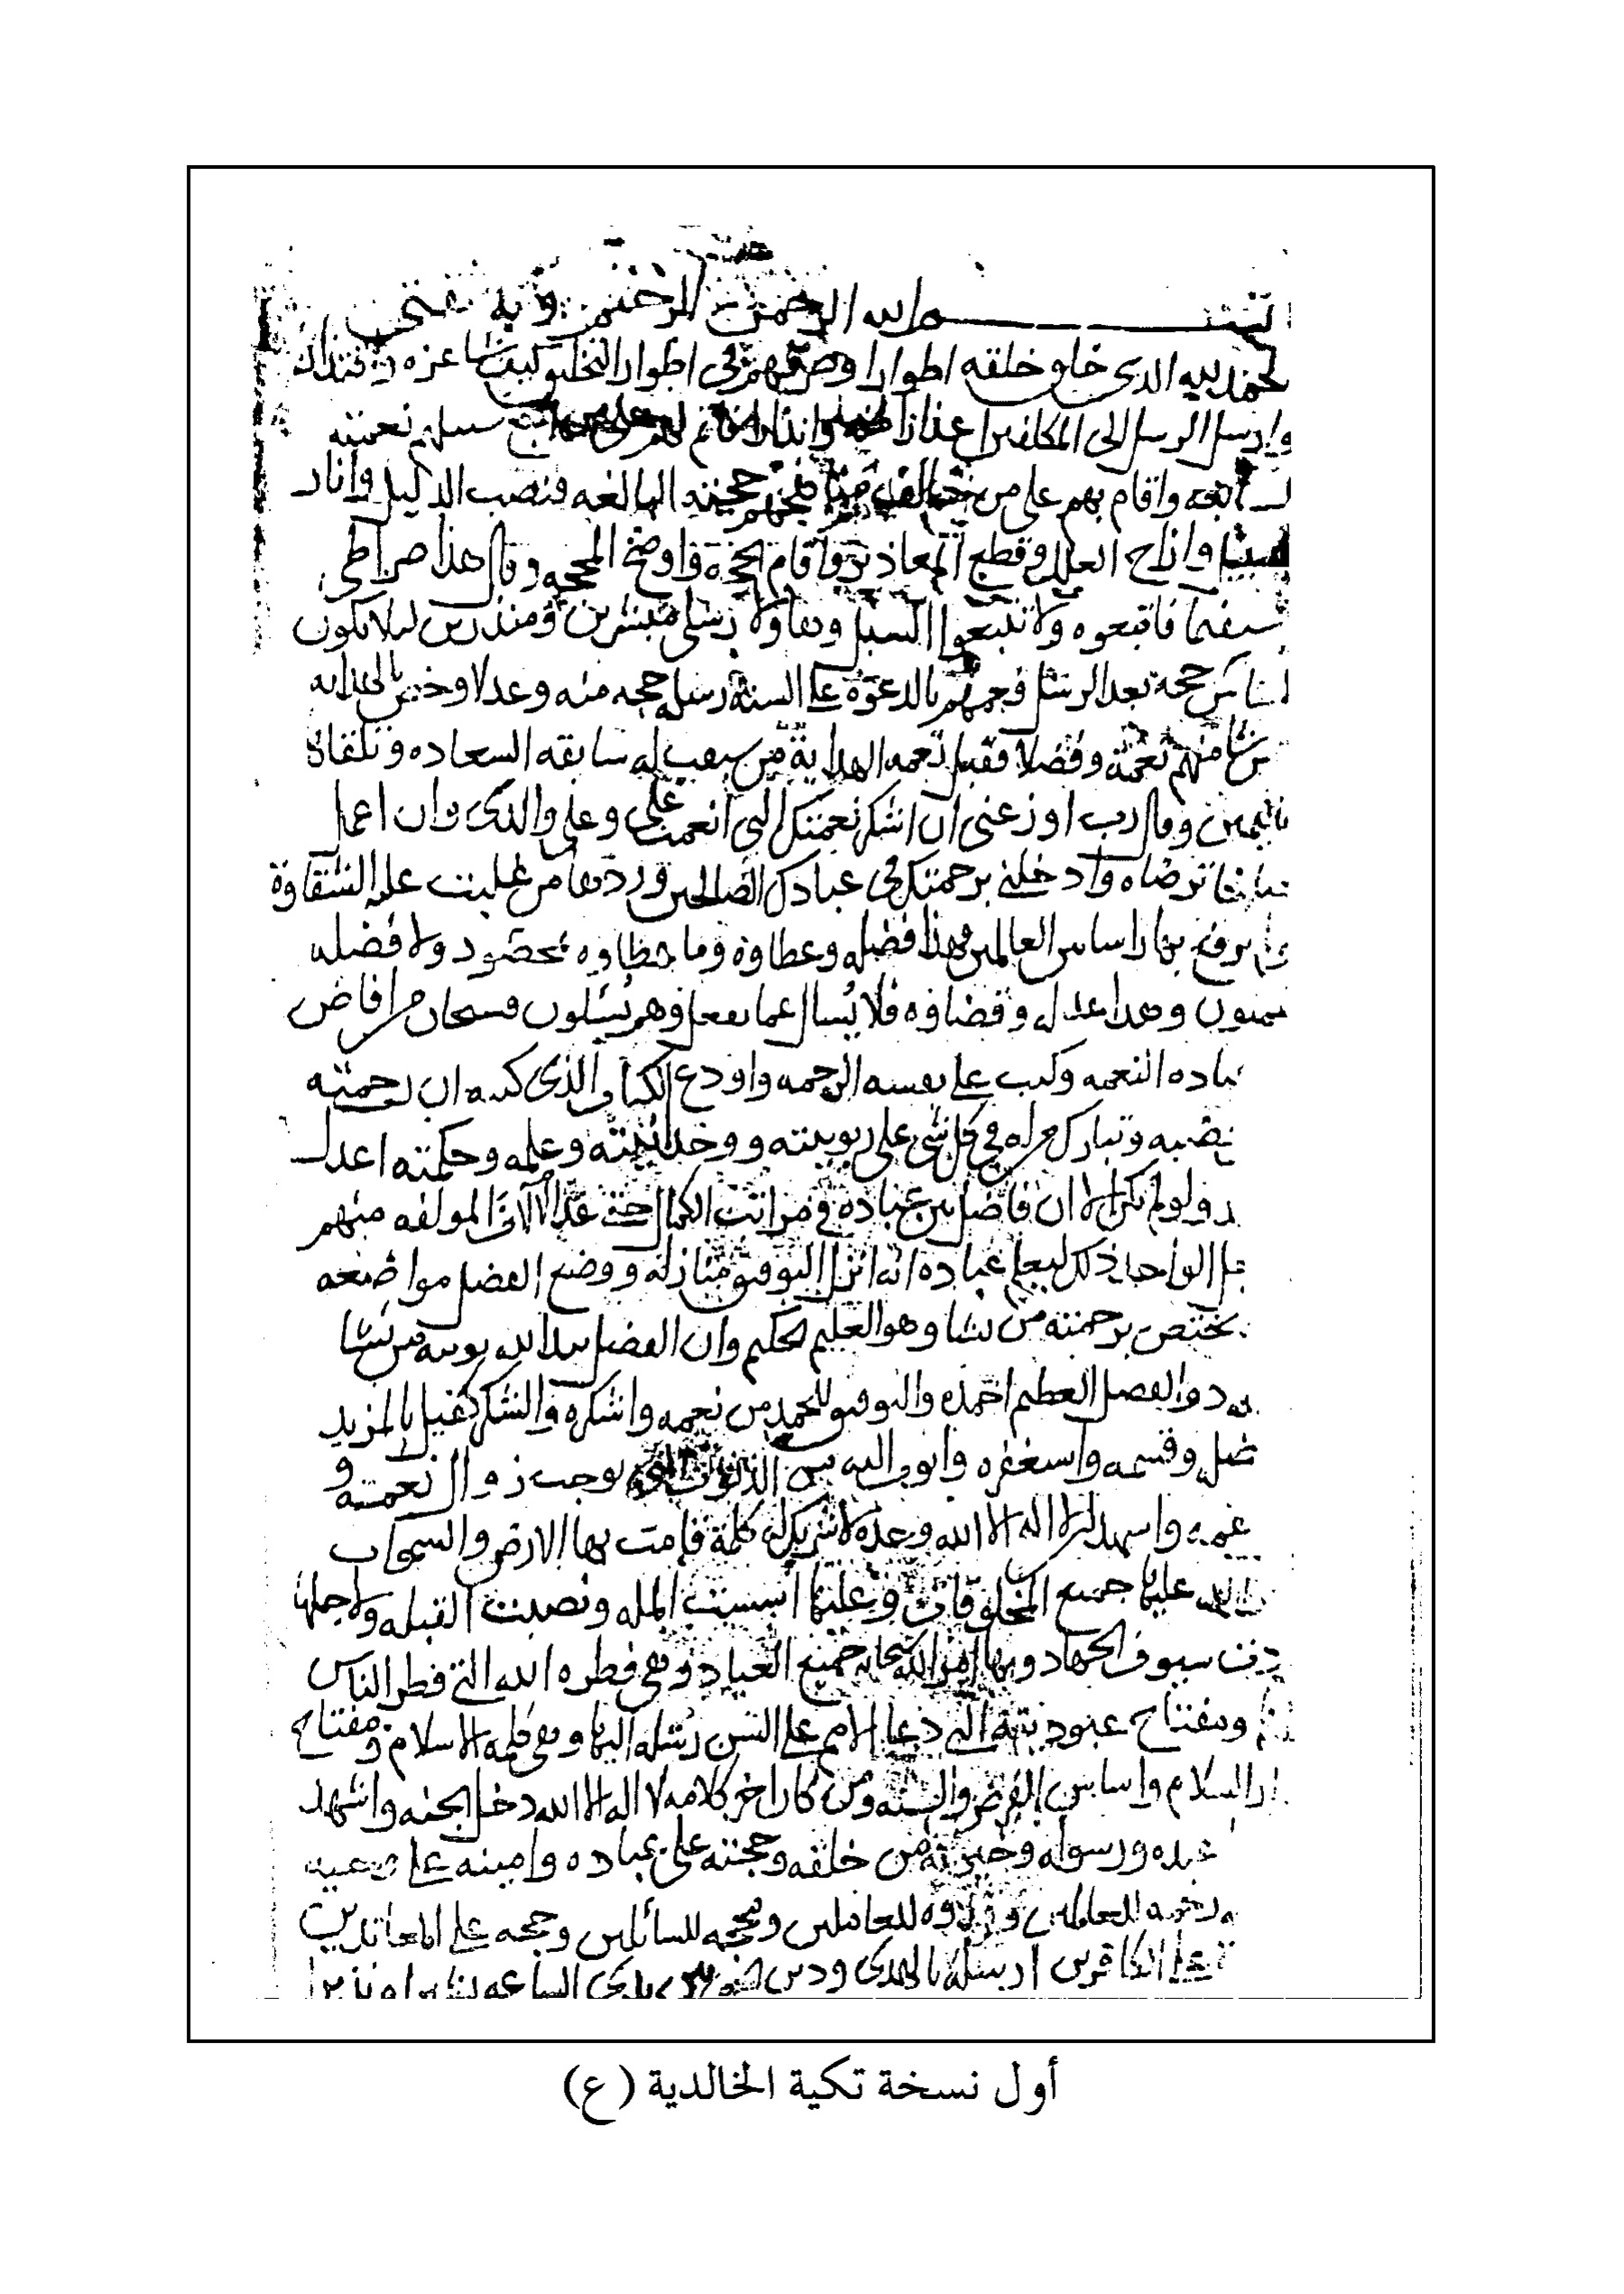 الله الرحمن الرحيم وبه
لحمد لله الذى خلق خلقه اطوارا وصرفهم فى اطوار التخليق كيف شا عزه و
وارسل الرسل الى المكلفين اعذارا وانذارا سبيلهم نعمته
واقام بهم على من حجته البالغه فنصب الدليل وانار
وازاح العلل وقطع المعاذير واقام الحجه واوضح المحجه وقال هذا صراطى
فاتبعوه ولا تتبعوا السبل وهاولا رسلى مبشرين ومنذرين ليلا يكون
حجه بعد الرسل فعمهم بالدعوة على السنة رسله حجه منه وعدلا وخص بالهدايه
منهم نعمة وفضلا فقبل نعمه الهداية من سابقه السعاده وتلقاها
وقال رب اوزعنى ان اشكر نعمتك التى انعمت على وعلى والدى وان اعمل
ترضاه وادخلنى برحمتك فى عبادك الصالحين وردها من غلبت عليه الشقاوة
يرفع بها راسا بين العالمين فهذا فضله وعطاوه وما عطاوه بمحضور ولا فضله
وهذا عدله وقضاوه فلا يسال عما يفعل وهم يسئلون فسبحان من افاض
النعمه وكتب على نفسه الرحمه واودع الكتاب الذى كتبه ان رحمته
وتبارك من له فى كل شى على ربوبيته ووحدانيته وعلمه وحكمته اعدل
ولو لم يكن الا ان فاضل بين عباده فى مراتب الكمال حتى عد الالاف المولفه منهم
الواحد ذلك ليعلم عباده انه انزل التوفيق منازله ووضع الفضل مواضعه
يختص برحمته من يشا وهو العليم الحكيم وان الفضل بيد الله يوتيه من يشا
ذو الفضل العظيم احمده والتوفيق للحمد من نعمه واشكره والشكر كفيل بالمزيد
وقسمه واستغفره واتوب اليه من الذنوب التى توجب زوال نعمته و
واشهد ان لا اله الا الله وحده لا شريك له كلمة قامت بها الارض والسموات
عليها جميع المخلوقات وعليها اسست المله ونصبت القبله ولاجلها
سيوف الجهاد وبها امر الله سبحانه جميع العباد وهى فطره الله التى فطر الناس
ومفتاح عبوديته التى دعا الامم على السن رسله اليها وهى كلمه الاسلام ومفتاح
دار السلام واساس الفرض والسنه ومن كان اخر كلامه لا اله الا الله دخل الجنه واشهد
عبده ورسوله وخيرته من خلقه وحجته على عباده وامينه على
للعالمين وقدوه للعاملين ومحجه للسالكين وحجه على المعاندين
على الكافرين ارسله بالهدى ودين بين يدى الساعه بشيرا ونذيرا
أول نسخة تكية الخالدية (ع)